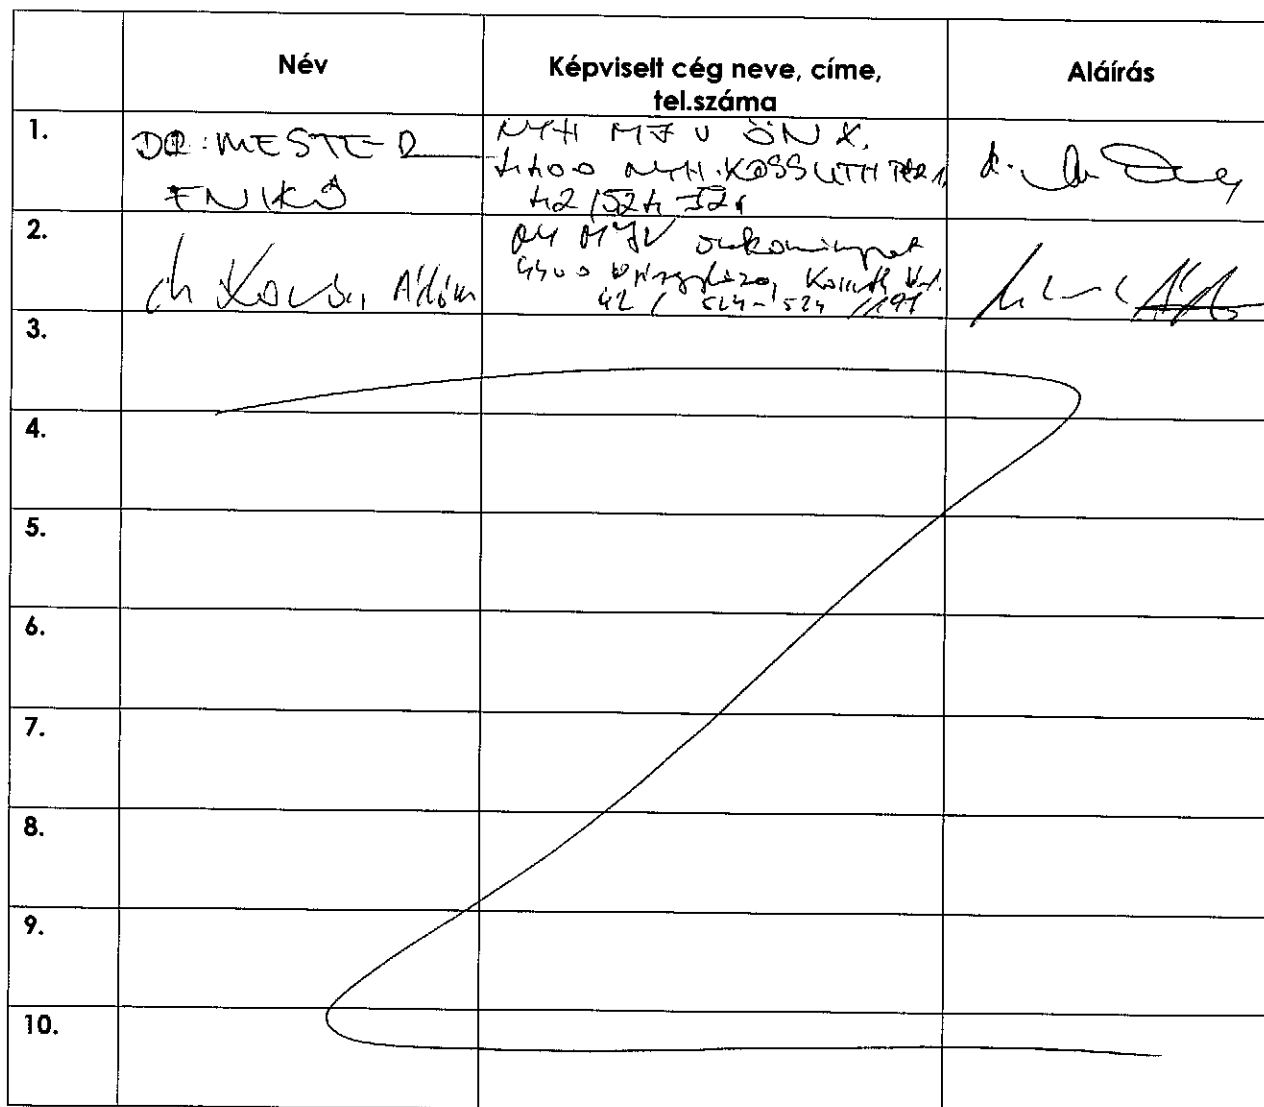 Név
Képviselt cég neve, címe,
tel.száma
Aláírás
1.
DR. MESTER
ENIKŐ
NYH MJV ÖNK.
4400 NYH. KOSSUTH TÉR 1.
42/524-524
2.
dr Kovács Ádám
MJV önkormányzat
4400 Nyíregyháza, Kossuth
42 / 524-524
3.
4.
5.
6.
7.
8.
9.
10.